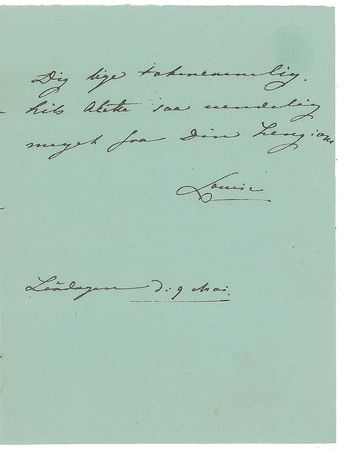 Dig lige taknemmelig.
hils Mette saa uendelig
meget fra Din hengivne
Louise
Löndagen d: 9 Mai.